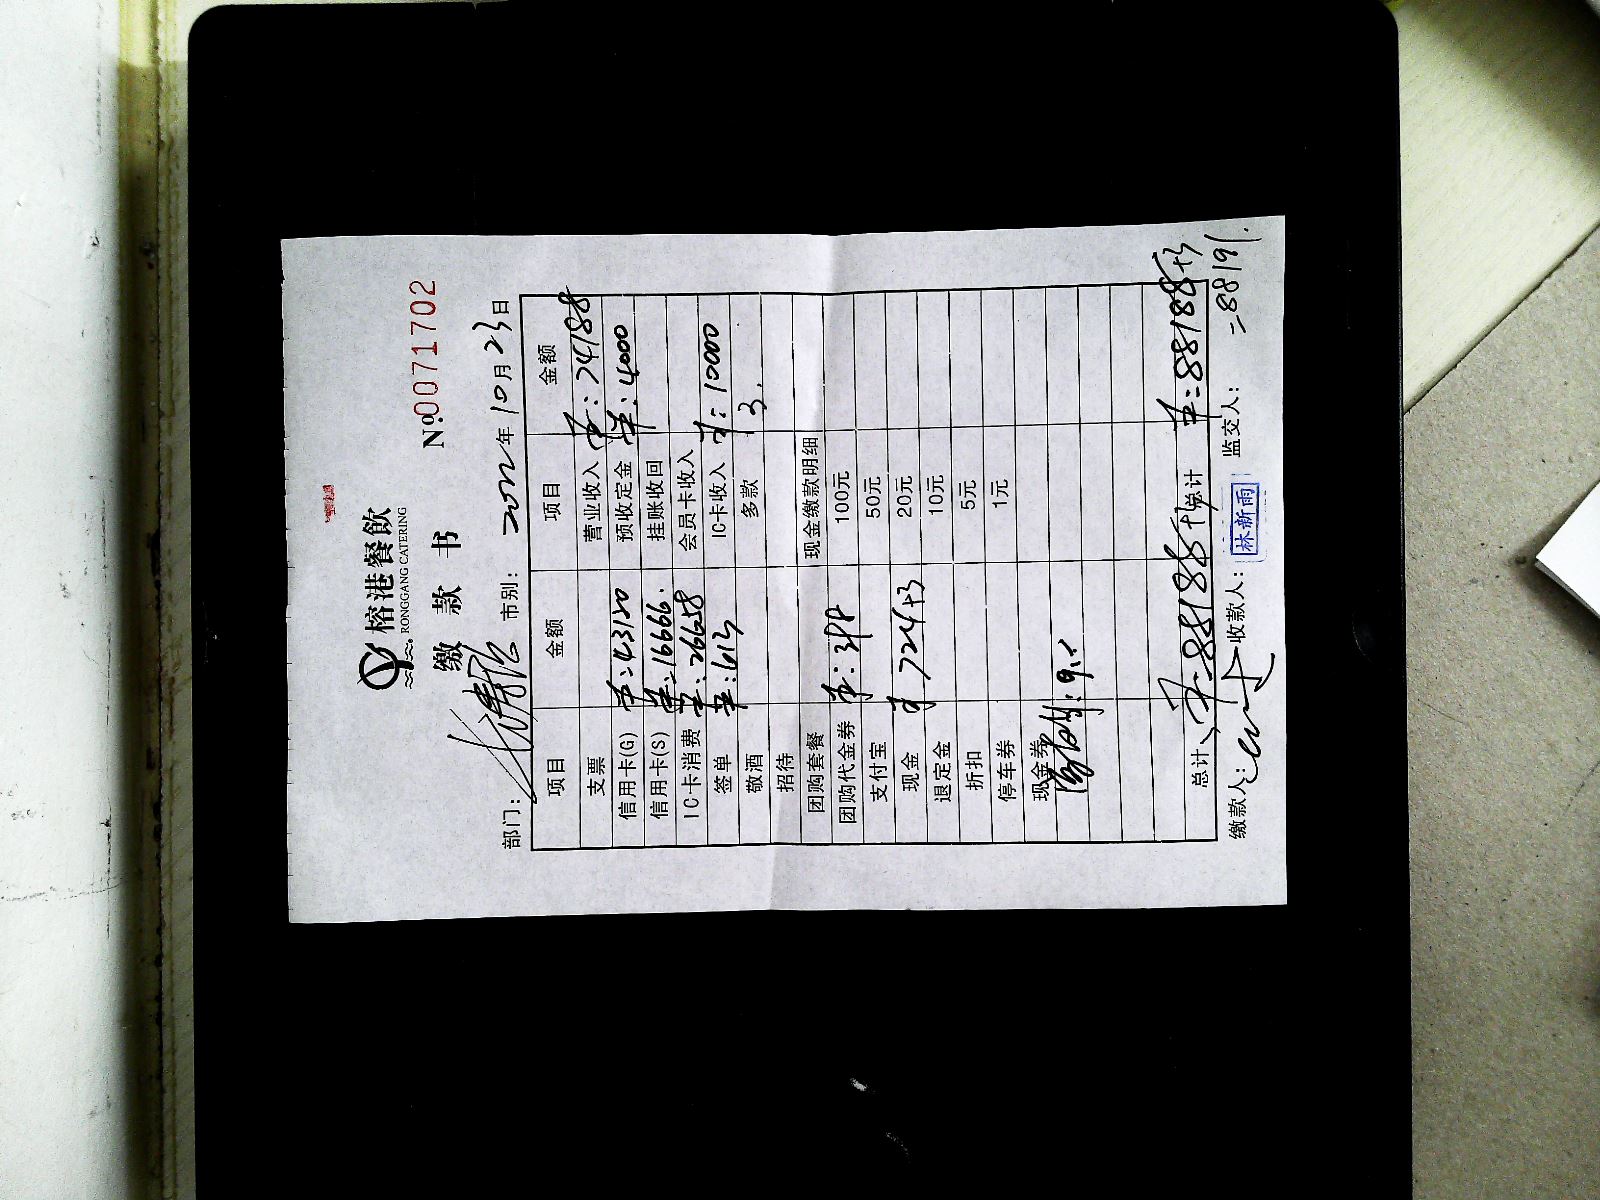 榕港餐飲
RONGGANG CATERING
缴款书
№0071702
部门： 市别： 2022年10月23日
项目 金额 项目 金额
支票 营业收入 ¥:74188
信用卡(G) ¥:43120 预收定金 ¥:4000
信用卡(S) ¥:16666. 挂账收回
IC卡消费 ¥:26658 会员卡收入
签单 ¥:613 IC卡收入 ¥:10000
敬酒 多款 3.
招待
团购套餐 现金缴款明细
团购代金券 100元
支付宝 50元
现金 ¥724+3 20元
退定金 10元
折扣 5元
停车券 1元
现金券
总计 ¥:88188+3 总计 ¥:88188+3
缴款人： 收款人： 林新雨 监交人： =88191.